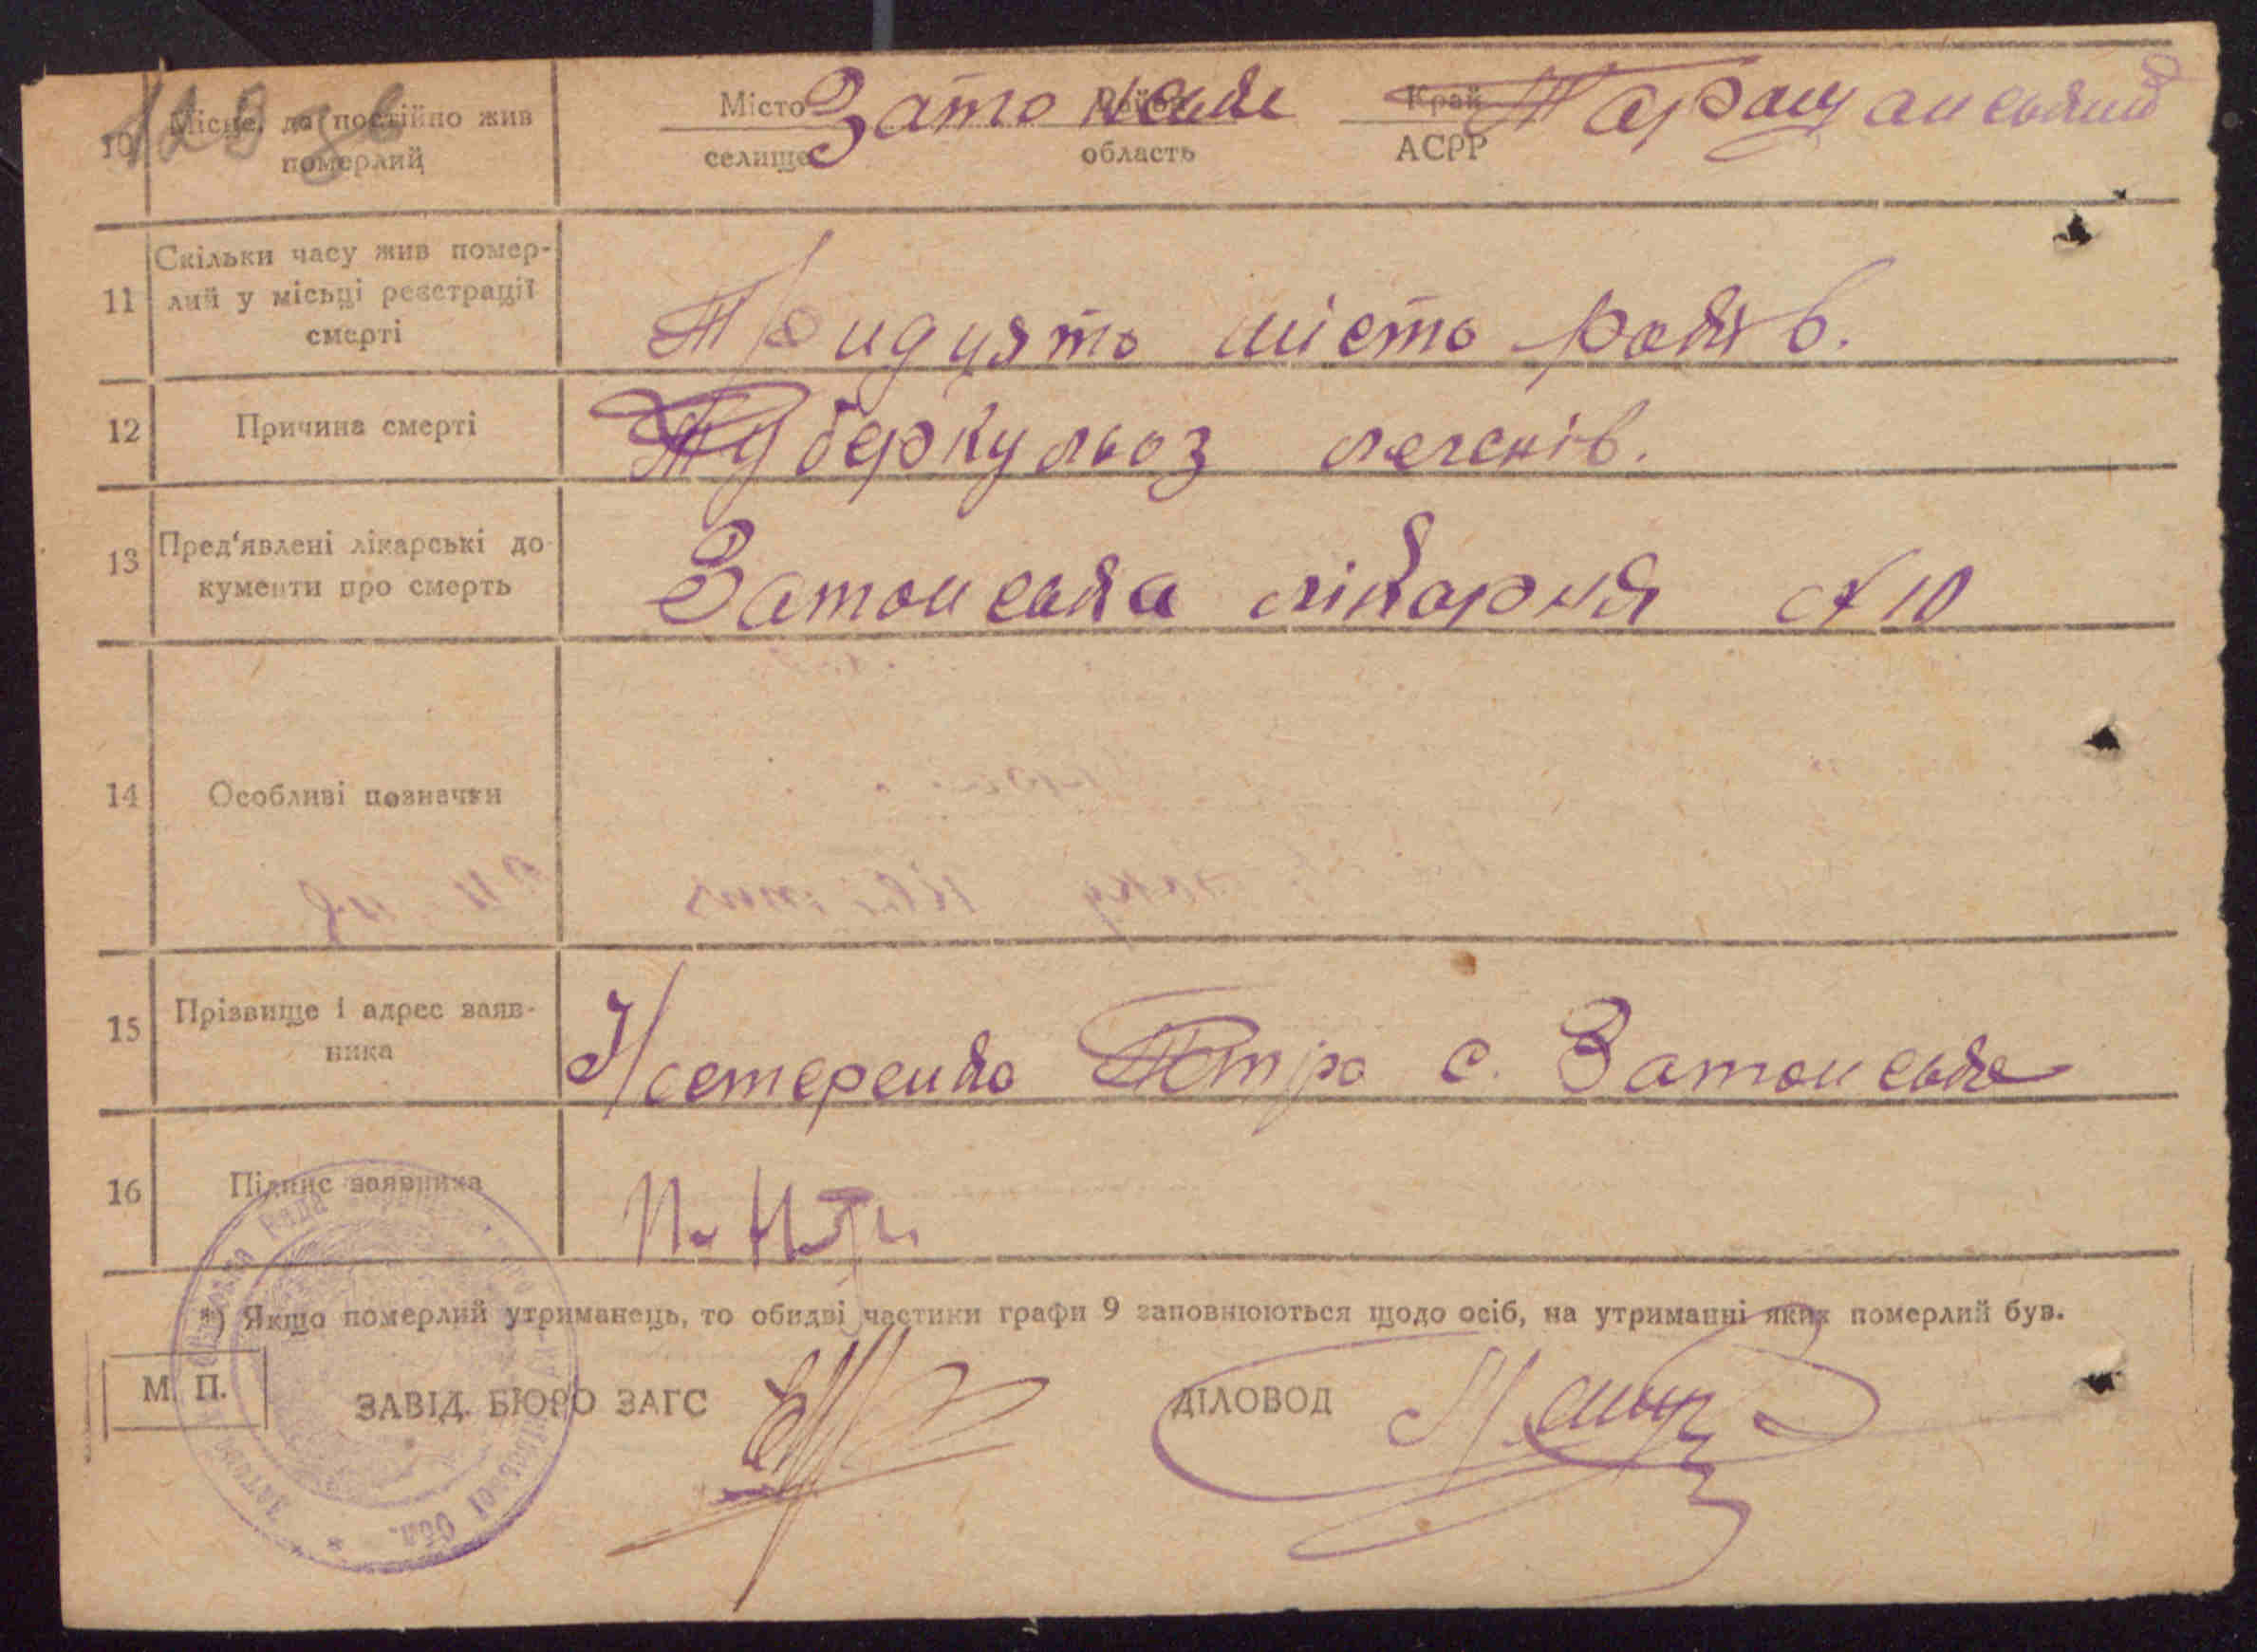 10 Місце, де постійно жив померлий
Місто селище Район область Край АСРР
Затонське Таращанський
11 Скільки часу жив помер-
лий у місьці реєстрації
смерті
Тридцять шість років.
12 Причина смерті Туберкульоз легенів.
13 Пред'явлені лікарські до-
кументи про смерть
Затонська лікарня № 10
14 Особливі позначки
15 Прізвище і адрес заяв-
ника
Нестеренко Петро с. Затонське
16 Підпис заявника
*) Якщо померлий утриманець, то обидві частини графи 9 заповнюються щодо осіб, на утриманні яких померлий був.
М. П. ЗАВІД. БЮРО ЗАГС ДІЛОВОД